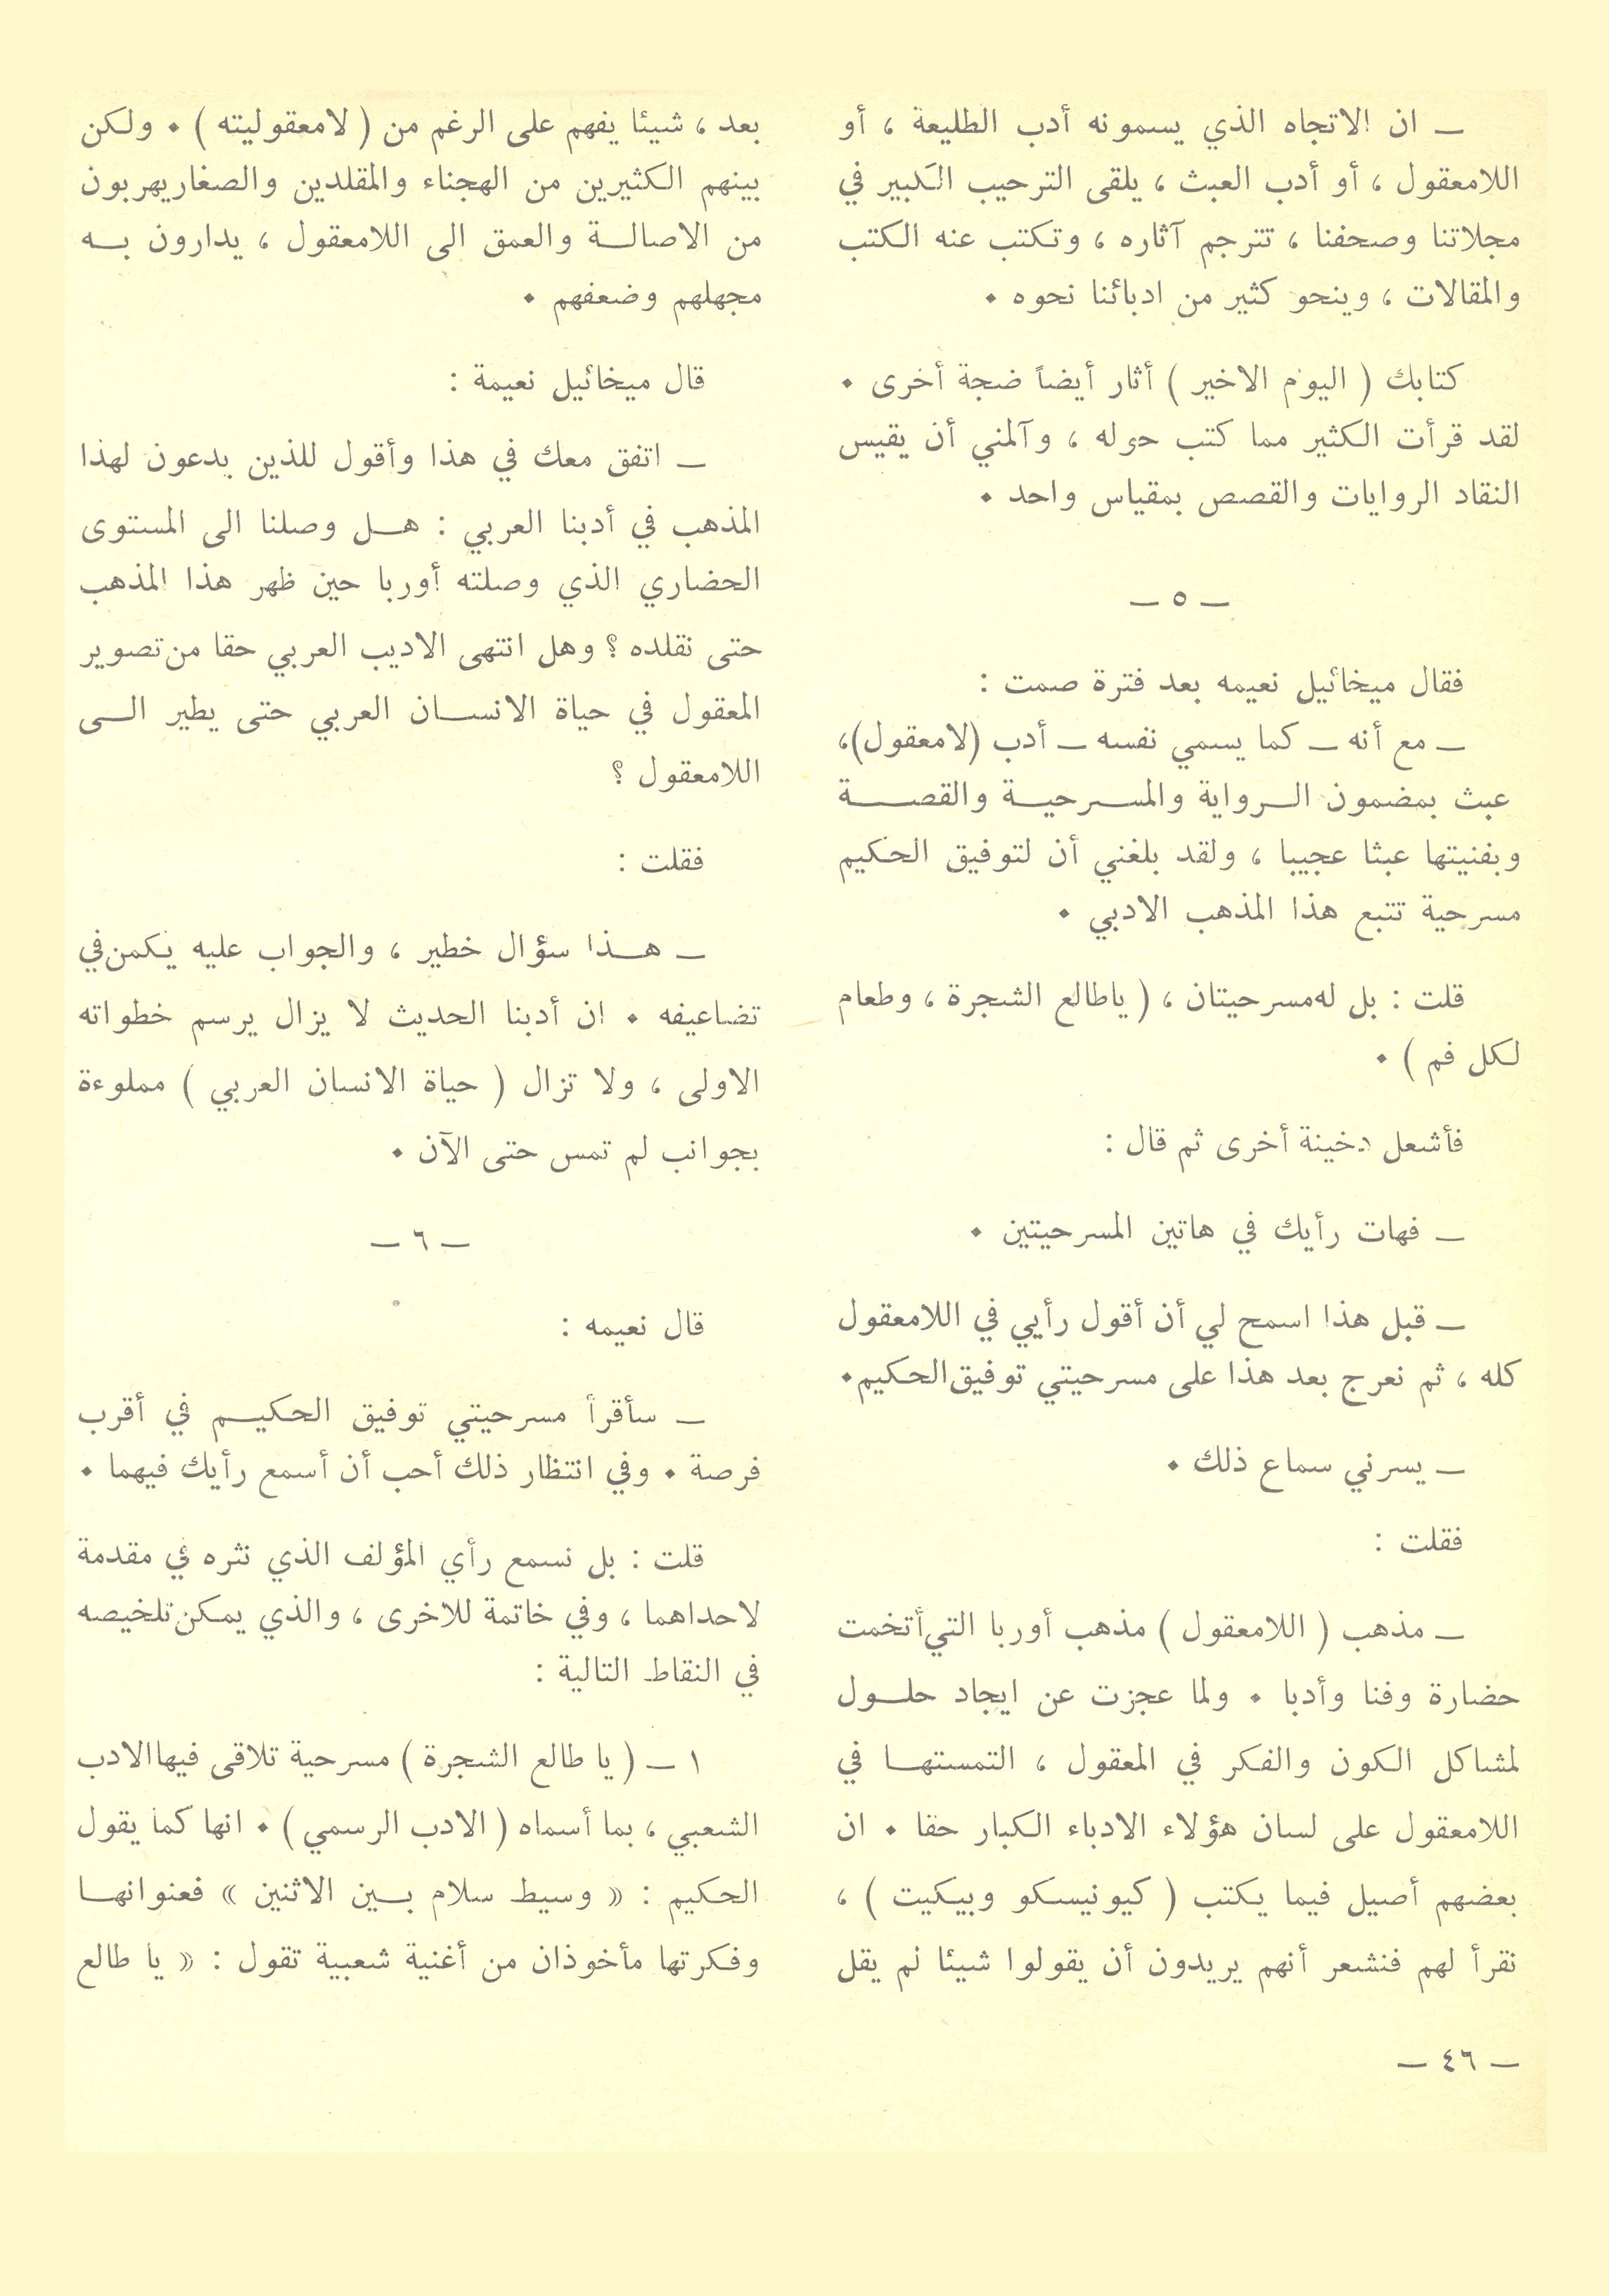 ـ ان الاتجاه الذي يسمونه أدب الطليعة ، أو
اللامعقول ، أو أدب العبث ، يلقى الترحيب الكبير في
مجلاتنا وصحفنا ، تترجم آثاره ، وتكتب عنه الكتب
والمقالات ، وينحو كثير من ادبائنا نحوه ٠
كتابك ( اليوم الاخير ) أثار أيضاً ضجة أخرى ٠
لقد قرأت الكثير مما كتب حوله ، وآلمني أن يقيس
النقاد الروايات والقصص بمقياس واحد ٠
ـ ٥ ـ
فقال ميخائيل نعيمه بعد فترة صمت :
ـ مع أنه ـ كما يسمي نفسه ـ أدب (لامعقول)،
عبث بمضمون الرواية والمسرحية والقصة
وبفنيتها عبثا عجيبا ، ولقد بلغني أن لتوفيق الحكيم
مسرحية تتبع هذا المذهب الادبي ٠
قلت : بل له مسرحيتان ، ( ياطالع الشجرة ، وطعام
لكل فم ) ٠
فأشعل دخينة أخرى ثم قال :
ـ فهات رأيك في هاتين المسرحيتين ٠
ـ قبل هذا اسمح لي أن أقول رأيي في اللامعقول
كله ، ثم نعرج بعد هذا على مسرحيتي توفيق الحكيم٠
ـ يسرني سماع ذلك ٠
فقلت :
ـ مذهب ( اللامعقول ) مذهب أوربا التي أتخمت
حضارة وفنا وأدبا ٠ ولما عجزت عن ايجاد حلول
لمشاكل الكون والفكر في المعقول ، التمستها في
اللامعقول على لسان هؤلاء الادباء الكبار حقا ٠ ان
بعضهم أصيل فيما يكتب ( كيونيسكو وبيكيت ) ،
نقرأ لهم فنشعر أنهم يريدون أن يقولوا شيئا لم يقل
ـ ٤٦ ـ
بعد ، شيئا يفهم على الرغم من ( لامعقوليته ) ٠ ولكن
بينهم الكثيرين من الهجناء والمقلدين والصغار يهربون
من الاصالة والعمق الى اللامعقول ، يدارون به
مجهلهم وضعفهم ٠
قال ميخائيل نعيمة :
ـ اتفق معك في هذا وأقول للذين يدعون لهذا
المذهب في أدبنا العربي : هل وصلنا الى المستوى
الحضاري الذي وصلته أوربا حين ظهر هذا المذهب
حتى نقلده ؟ وهل انتهى الاديب العربي حقا من تصوير
المعقول في حياة الانسان العربي حتى يطير الى
اللامعقول ؟
فقلت :
ـ هذا سؤال خطير ، والجواب عليه يكمن في
تضاعيفه ٠ ان أدبنا الحديث لا يزال يرسم خطواته
الاولى ، ولا تزال ( حياة الانسان العربي ) مملوءة
بجوانب لم تمس حتى الآن ٠
ـ ٦ ـ
قال نعيمه :
ـ سأقرأ مسرحيتي توفيق الحكيم في أقرب
فرصة ٠ وفي انتظار ذلك أحب أن أسمع رأيك فيهما ٠
قلت : بل نسمع رأي المؤلف الذي نثره في مقدمة
لاحداهما ، وفي خاتمة للاخرى ، والذي يمكن تلخيصه
في النقاط التالية :
١ ـ ( يا طالع الشجرة ) مسرحية تلاقى فيها الادب
الشعبي ، بما أسماه ( الادب الرسمي ) ٠ انها كما يقول
الحكيم : « وسيط سلام بين الاثنين » فعنوانها
وفكرتها مأخوذان من أغنية شعبية تقول : « يا طالع